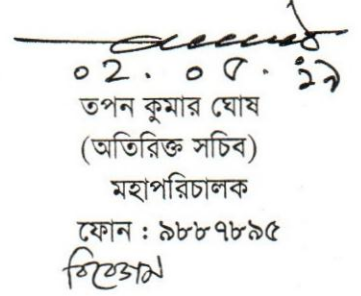 ০২.০৫.২১
তপন কুমার ঘোষ
(অতিরিক্ত সচিব)
মহাপরিচালক
ফোন : ৯৮৮৭৮৯৫